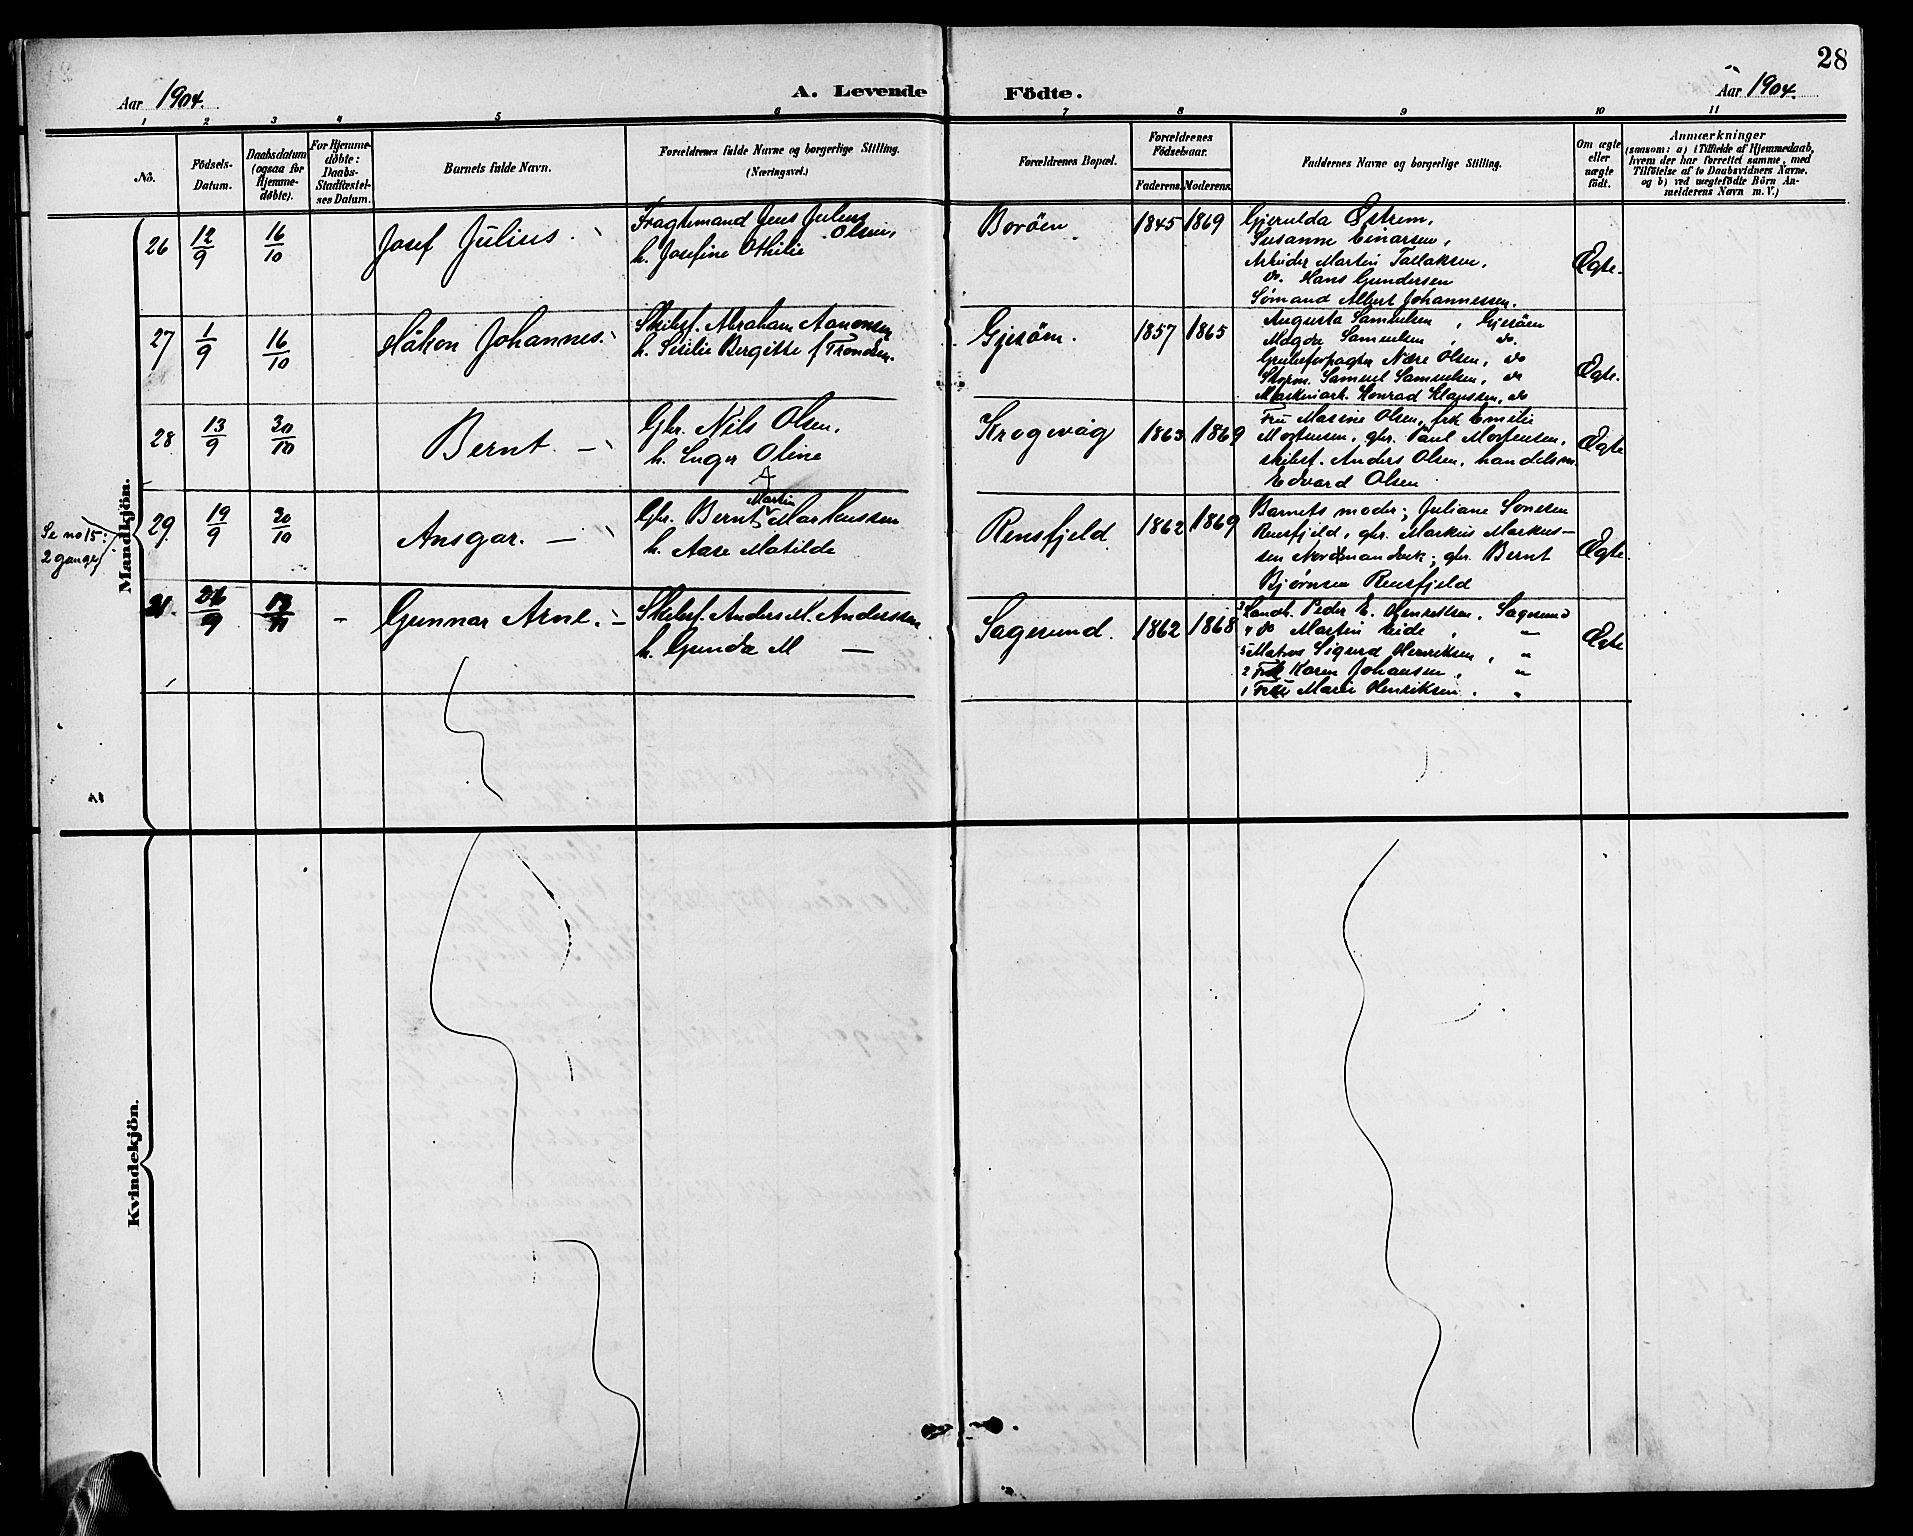 28
Aar 1904.
A. Levende
Födte.
Aar 1904.
1 2 3 4 5 6 7 8 9 10 11
No.
Födsels-
Datum.
Daabsdatum
(ogsaa for
Hjemme-
døbte).
For Hjemme-
døbte:
Daabs-
Stadfæstel-
ses Datum.
Barnets fulde Navn.
Forældrenes fulde Navne og borgerlige Stilling.
(Næringsvei.)
Forældrenes Bopæl.
Forældrenes
Födselsaar.
Faderens. Moderens.
Faddernes Navne og borgerlige Stilling.
Om ægte
eller
uægte
født.
Anmærkninger
(saasom: a) i Tilfælde af Hjemmedaab,
hvem der har forrettet samme, med
Tilföielse af to Daabsvidners Navne,
og b) ved uægtefødte Börn An-
melderens Navn m. V.)
Mandkjön.
26
12/9
16/10
Josef Julius.
Fragtemand Jens Julius
Olsen,
h. Josefine Othilie
Borøen
1845 1869
Gjerulda Østrem,
Susanne Einarsen,
Arbeider Martin Tallaksen,
do. Hans Gundersen
Sømand Albert Johannessen.
Ægte.
27
1/9
16/10
Håkon Johannes.
Skibsf. Abraham Aanonsen
h. Sesilie Bergitte f. Trondsen.
Gjesöen.
1857 1865
Augusta Samuelsen, Gjesöen
Magda Samuelsen, do.
Olsen, do
Styrm. Samuel Samuelsen, do
Konrad Klaussen, do
Ægte.
28
13/9
20/10
Bernt. —
Gbr. Nils Olsen,
h. Inger Oline
Krogevåg
1863 1869
Fru Massine Olsen, frk Emilie
Mortensen, gbr. Paul Mortensen,
skibsf. Anders Olsen, handelsm.
Edvard Olsen
Ægte
Se no 15:
2 ganger
29.
19/9
20/10
Ansgar. —
Martin
Gbr. Bernt Markussen
h. Aase Matilde
Rensfjeld
1862 1869
Barnets moder; Juliane Sonesen
Rensfjeld, gbr. Markus Markus-
sen ; gbr. Bernt
Bjørnsen Rensfjeld
Ægte.
Gunnar Arne. —
Skibsf. Anders M. Anderssen
h. Gunda M —
Sagesund.
1862 1868
3 Landh. Peder E. Henriksen, Sagesund
4 do Martin Eide, —
5 Matros Sigurd Henriksen, "
2 Frk Karen Johansen, "
1 Fru Marie Henriksen, "
Ægte
Kvindekjön.